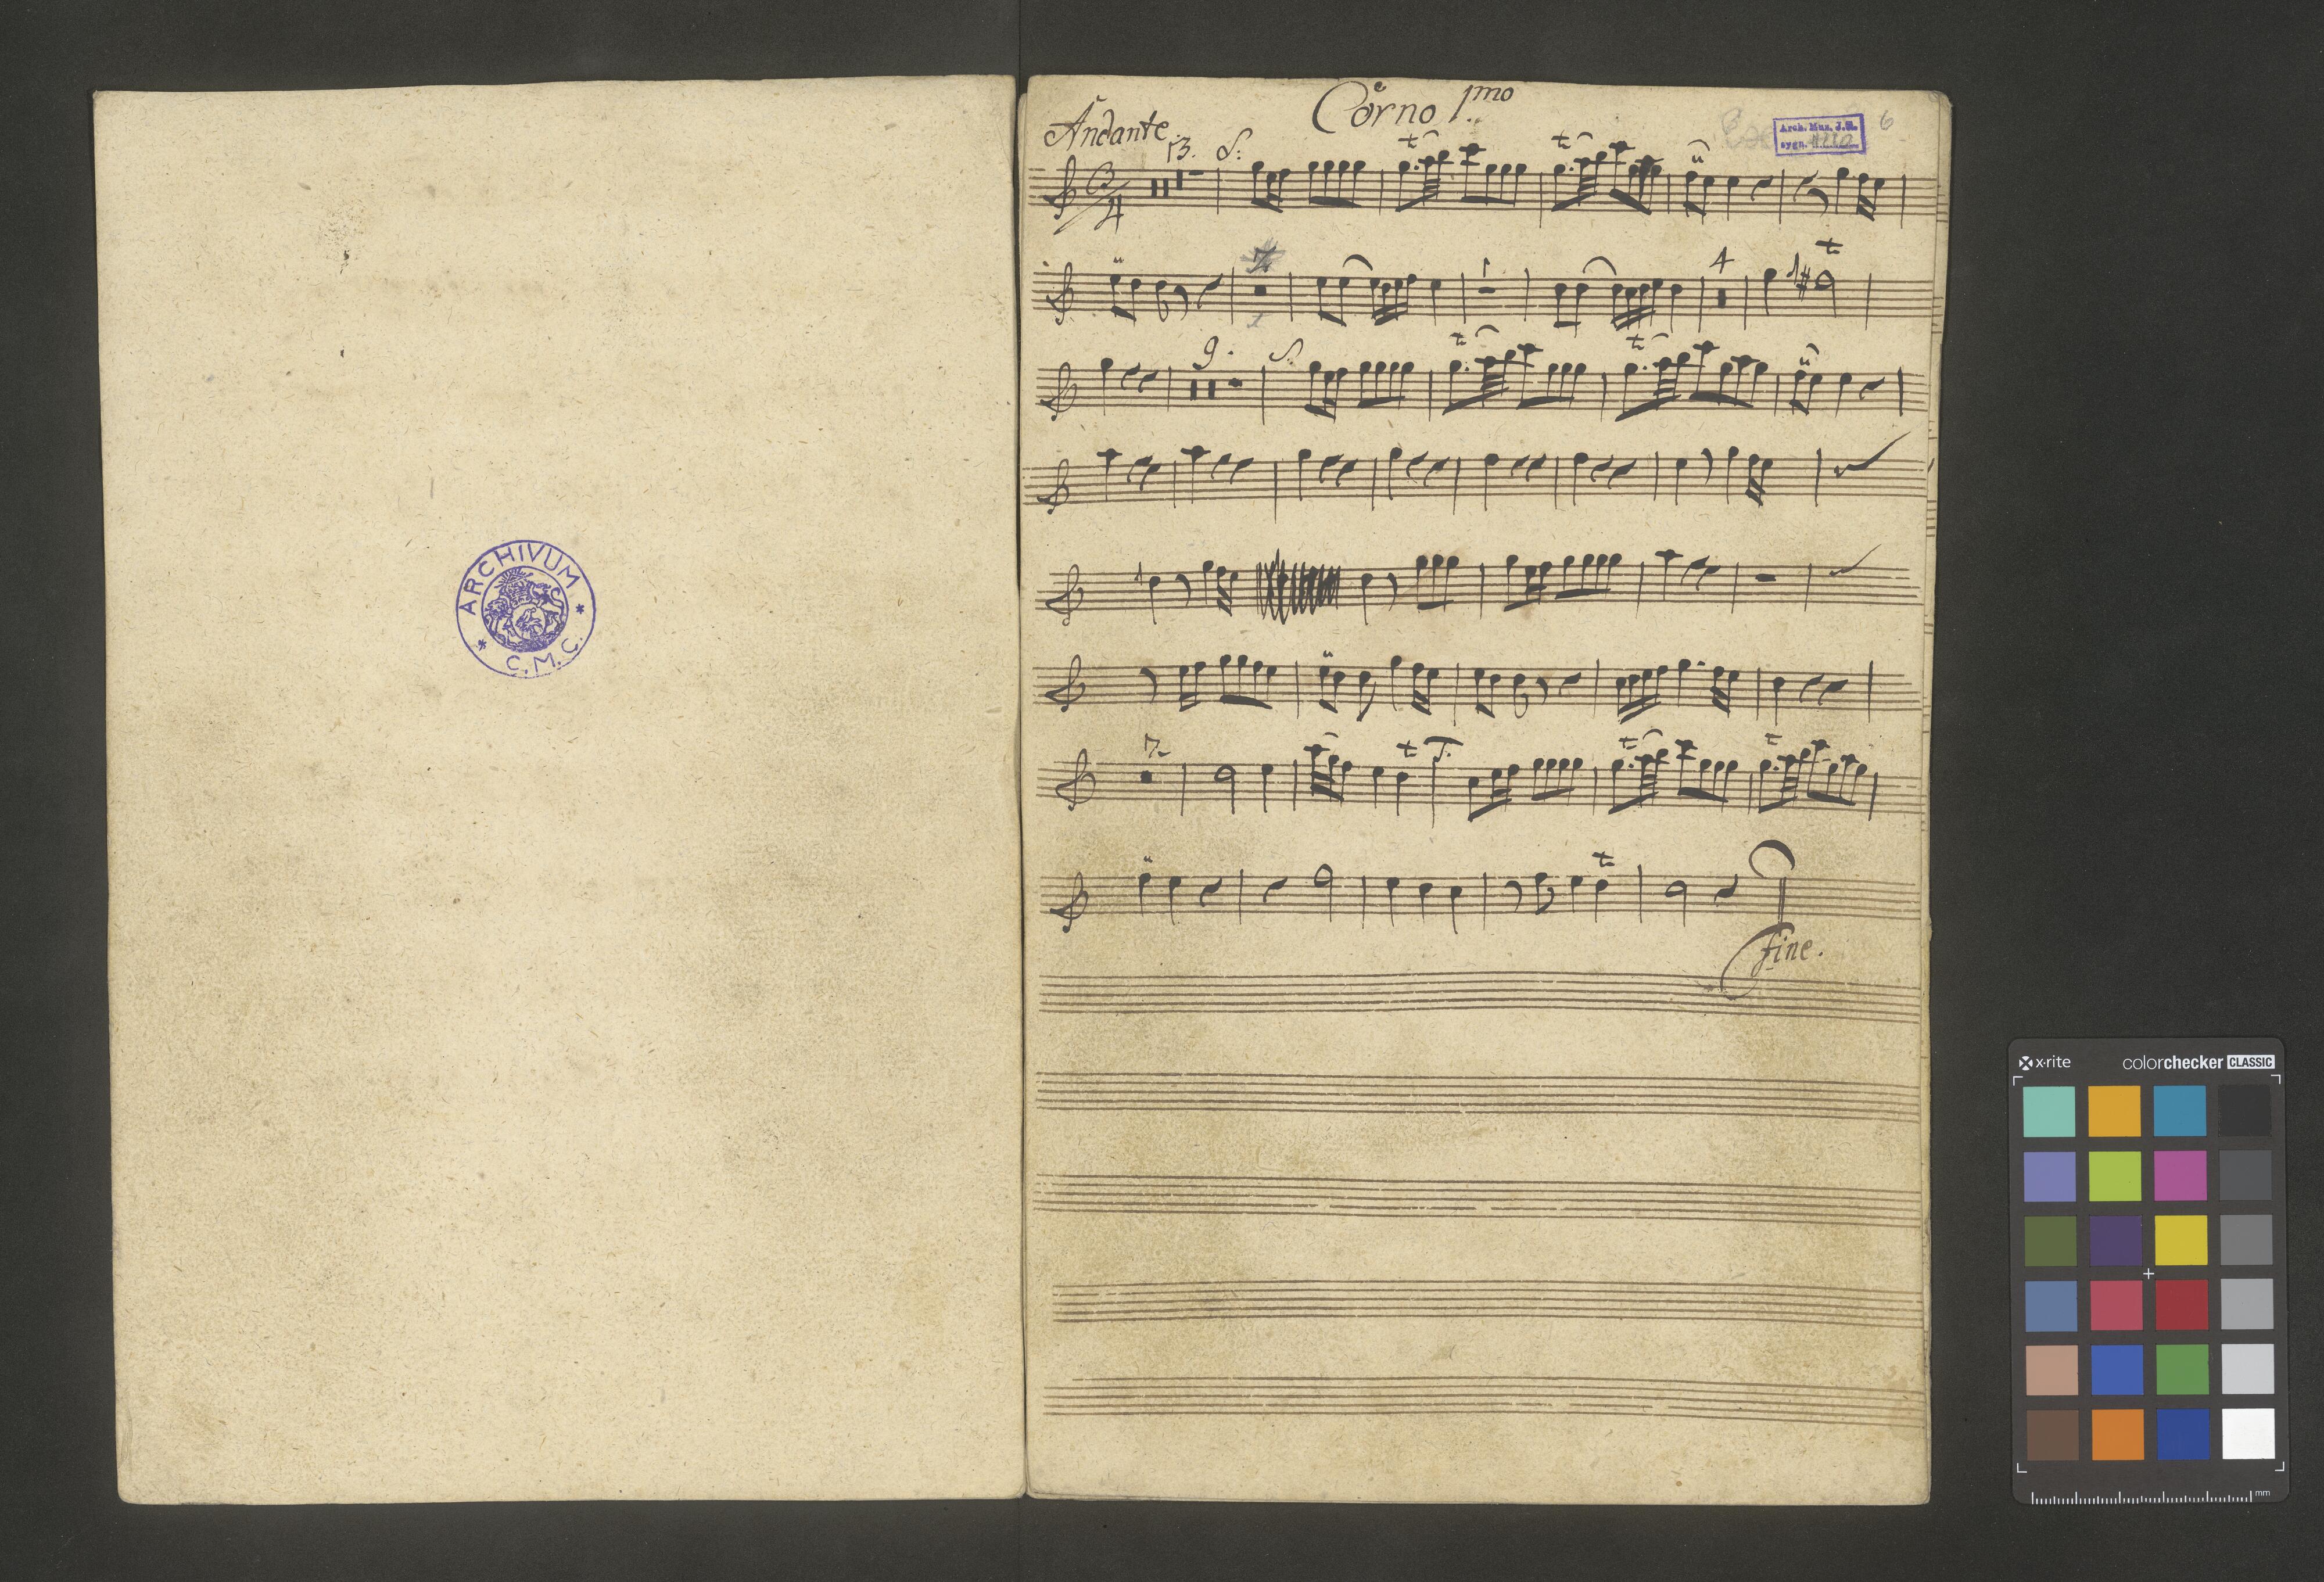 ARCHIVUM
* C.M.C. *
Corno 1mo
6
Andante.
Arch. Muz. J.G.
sygn.
13. S:
t t
3
4
4 t
9. S. t t
7 t T. t t
t
fine.
x·rite colorchecker CLASSIC
mm